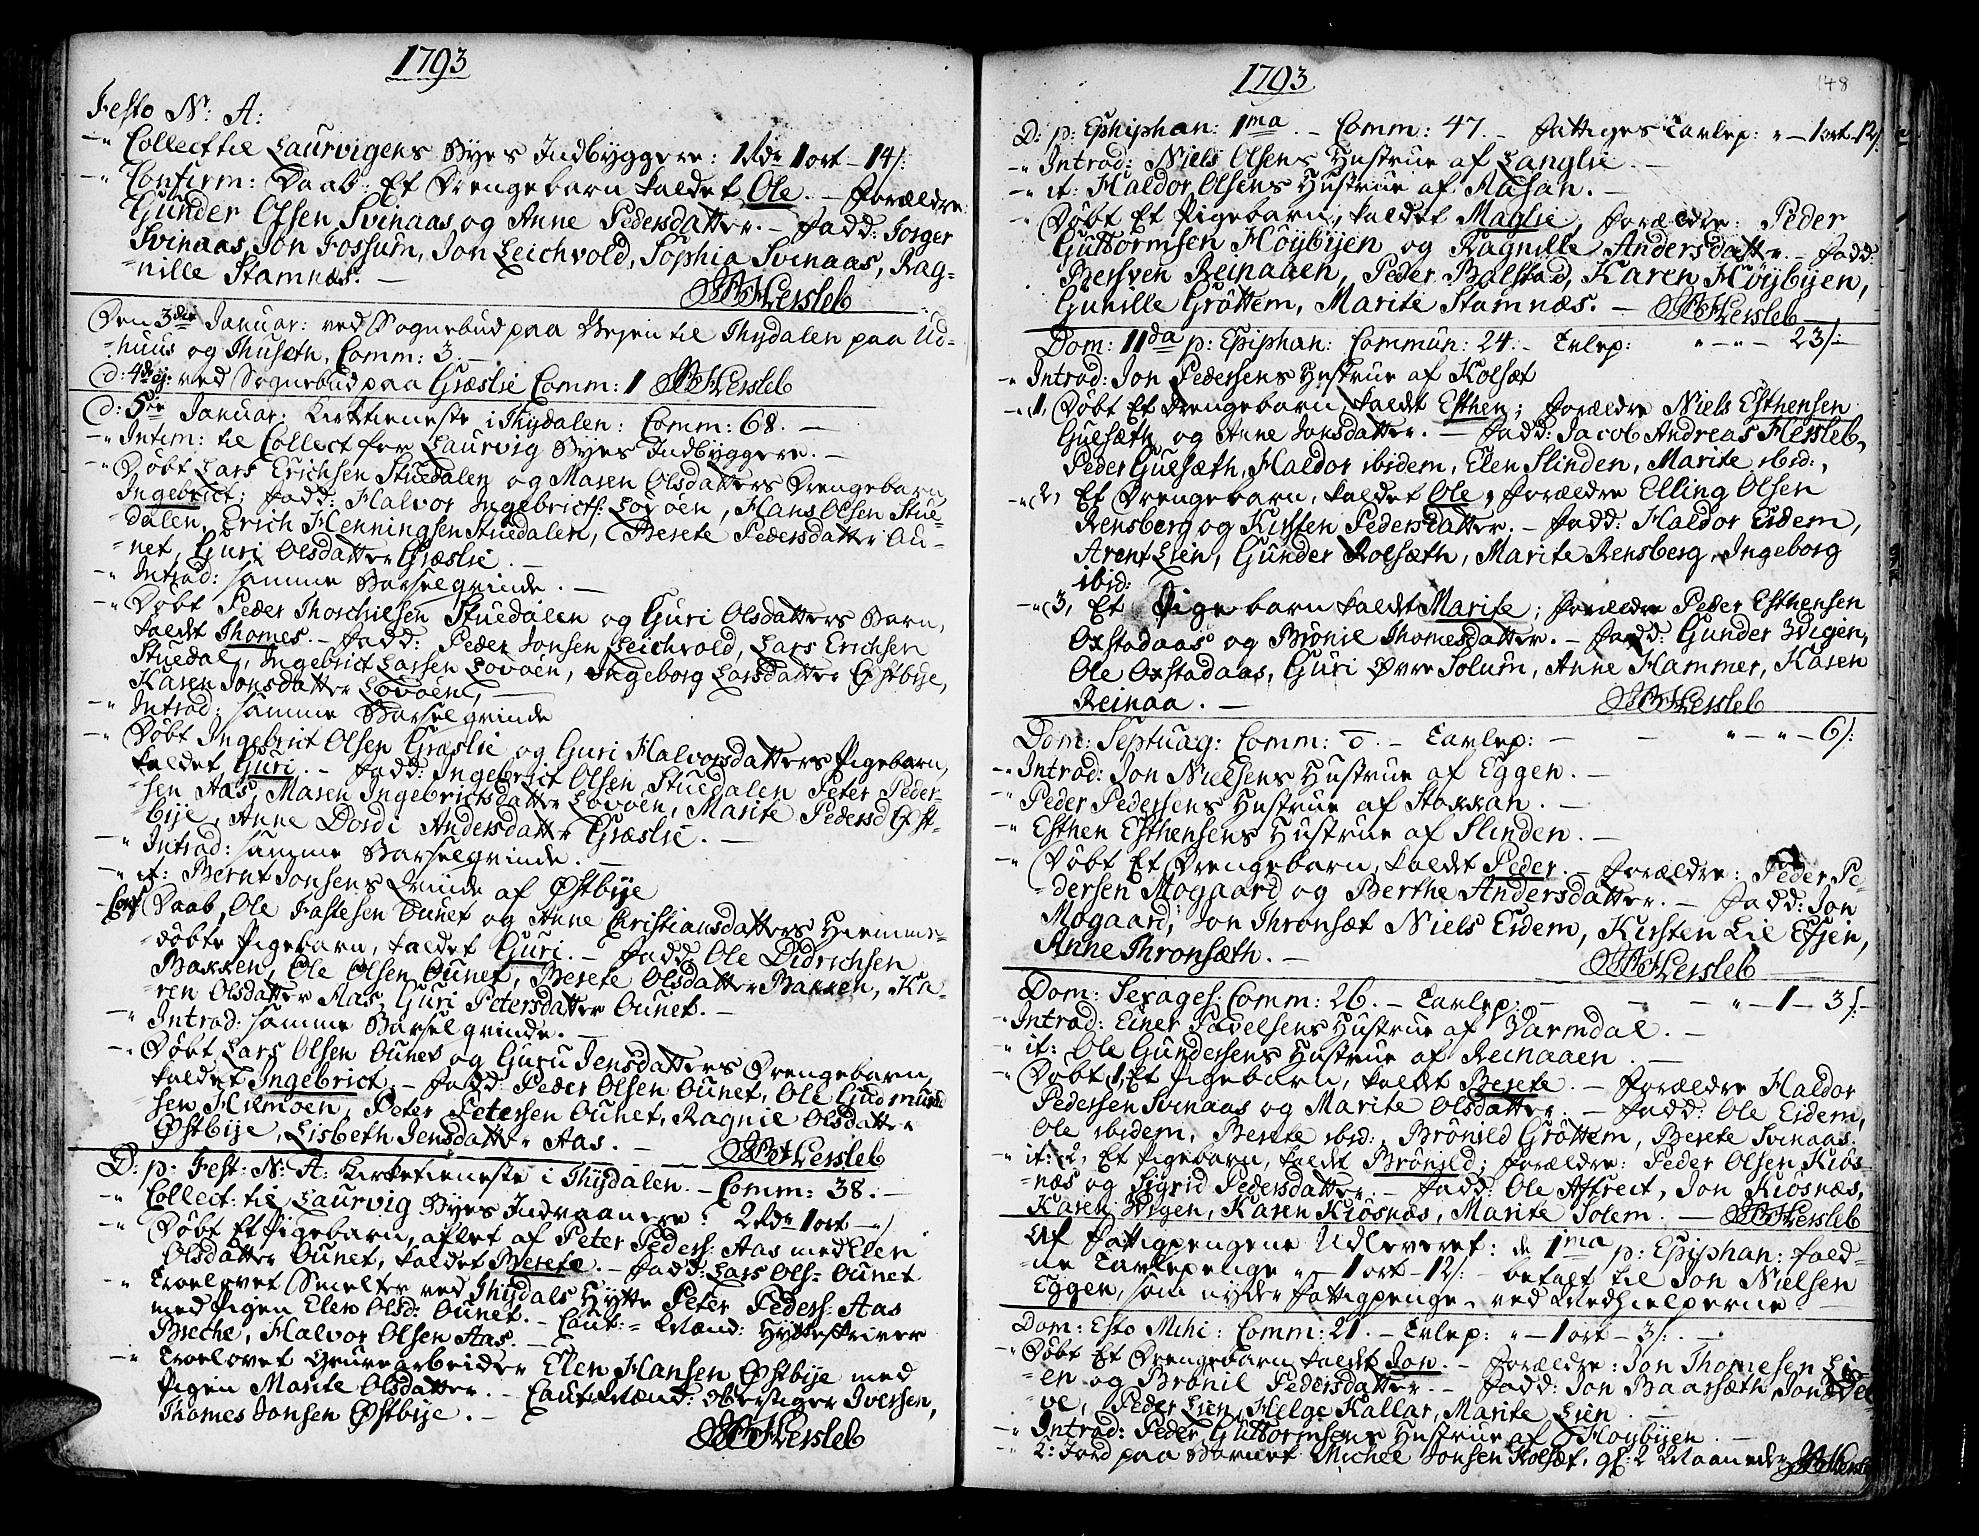 1793
Festo N: A:
-" Collect til Laurvigens Byes Indbyggere: 1 Rdr 1 ort - 14 s:
-" Confirm: Daab: Et Drengebarn kaldet Ole. - Forældre
Gunder Olsen Svinaas og Anne Pedersdatter. - Fadd: Torger
Svinaas, Jon Fossum, Jon Leichvold, Sophia Svinaas, Rag-
-nille Stamnæs. -
Hersleb
Den 3die Januar: ved Sognebud paa Vejen til Thydalen paa Ud-
-huus og Thuseth, Comm: 3. -
d: 4de ej: ved Sognebud paa Græslie Comm: 1 Hersleb
d: 5te Januar: Kirketieneste i Thydalen: Comm: 68. -
-" Intim: til Collect for Laurvig Byes Indbyggere. -
-" Døbt Lars Erichsen Stuedalen og Maren Olsdatters Drengebarn
Ingebrict; Fadd: Halvor Ingebricts: Lovøen, Hans Olsen Stue-
dalen, Erich Henningsen Stuedalen, Berete Pedersdatter Ou-
-net, Guri Olsdatter Græslie. -
-" Introd: samme Barselqvinde. -
-" Døbt Peder Thorchielsen Stuedalen og Guri Olsdatters Barn,
kaldet Thomes. - Fadd: Peder Jonsen Leichvold, Lars Erichsen
Stuedal, Ingebrict Larsen Lovøen, Ingeborg Larsdatter Østbye,
Karen Jonsdatter Lovøen, -
-" Introd: samme Barselqvinde
-" Døbt Ingebrict Olsen Græslie og Guri Halvorsdatters Pigebarn,
kaldet Guri. - Fadd: Ingebrict Olsen Stuedalen Peter Peder-
sen Aas, Maren Ingebrictsdatter Lovøen, Marite Pedersd Øst-
-bye, Anne Dordi Andersdatter Græslie. -
-" Introd: samme Barselqvinde. -
-" it: Bernt Jonsens Qvinde af Østbye
- Conf Daab, Ole Fastesen Ounet og Anne Christiansdatters Hiemme-
-døbte Pigebarn, kaldet Guri. - Fadd: Ole Didrichsen
Bakken, Ole Olsen Ounet, Berete Olsdatter Bakken, Ka-
-ren Olsdatter Aas, Guri Petersdatter Ounet. -
-" Introd: samme Barselqvinde. -
-" Døbt Lars Olsen Ounet og Guru Jensdatters Drengebarn,
kaldet Ingebrict. - Fadd: Peder Olsen Ounet, Ole Gudmund
sen Hilmoen, Peter Petersen Ounet, Ragnil Olsdatter
Østbye, Lisbeth Jensdatter Aas. -
Hersleb
D: p: Fest: N: A: Kirketieneste i Thydalen. - Comm: 38. -
-" Collect: til Laurvig Byes Indvaanere: 2 Rdr 1 ort - " s.
-" Døbt Et Pigebarn, aflet af Peter Peders: Aas med Elen
Olsdatter Ounet, kaldet Berete. - Fadd: Lars Ols= Ounet
-" Trolovet Smelter ved Thydals Hytte Peter Peders: Aas
med Pigen Elen Olsd: Ounet. - Caut:= Mænd: Hytteskriver
Breche, Halvor Olsen Aas. -
-" Trolovet Grubearbeider Elen Hansen Østbye med
Pigen Marite Olsdatter. - Caut: Mænd: Oberstiger Iversen,
Thomes Jonsen Østbye. -
Hersleb
1793
148
D: p: Ephiphan: 1ma. - Comm: 47. - Fattiges Tavlep: " - 1 ort - 12 s:
-" Introd: Niels Olsens Hustrue af Langlie. -
-" it: Haldor Olsens Hustrue af Aasan. -
-" Døbt Et Pigebarn, kaldet Maglie, Forældre: Peder
Guttormsen Høybyen og Ragnille Andersdatter. - Fadd:
Bersven Reinaaen, Peder Bolstad, Karen Høybyen,
Gunille Grøttem, Marite Stamnæs. - Hersleb
Dom: 11da p: Epiphan: Commun: 24. - Tvlep: " - " - 23 s: -
-" Introd: Jon Pedersens Hustrue af Kolsæt
-" 1, Døbt Et Drengebarn, kaldet Esthen; Forældre Niels Esthensen
Guesæth og Anne Jonsdatter. - Fadd: Jacob Andreas Hersleb,
Peder Guesæth, Haldor ibidem, Elen Slinden, Marite ibid:,
-" 2, Et Drengebarn, kaldet Ole, Forældre Elling Olsen
Rensberg og Kirsten Pedersdatter. - Fadd: Haldor Eidem,
Arent Lien, Gunder Kolsæth, Marite Rensberg, Ingeborg
ibid:
-" 3, Et Pige barn kaldt Marite; Forældre Peder Esthensen
Oxstadaas og Brønil Thomesdatter. - Fadd: Gunder Wigen,
Ole Oxstadaas, Guri Øvre Solum, Anne Hammer, Karen
Reinaa. - Hersleb
Dom: Septuag: Comm: 0. - Tavlep: - - " - " - 6 s:
-" Introd: Jon Nielsens Hustrue af Eggen. -
" Peder Pedersens Hustrue af Stokkan. -
-" Esthen Esthensens Hustrue af Slinden. -
-" Døbt Et Drengebarn, kaldet Peder. - Forældre: Peder Pe-
-dersen Mogaard og Berthe Andersdatter. - Fadd: Jon
Mogaard, Jon Thronsæt Niels Eidem, Kirsten Lil Evjen,
Anne Thronsæth. -
Hersleb
Dom: Sexages: Comm: 26. - Tavlep: - - - " - 1 - 3 s: -
-" Introd: Einer Pavelsens Hustrue af Varmdal. -
-" it: Ole Gundersens Hustrue af Reinaaen. -
-" Døbt 1, Et Pigebarn, kaldt Berete. - Forældre Haldor
Pedersen Svinaas og Marite Olsdatter. - Fadd: Ole Eidem,
Ole ibidem, Berete ibid:, Brønild Grøttem, Berete Svinaas.
-" it: 2, Et Pigebarn, kaldt Brønild; Forældre: Peder Olsen Kiøs-
-næs og Sigrid Pedersdatter. - Fadd: Ole Aftret, Jon Kiøsnæs,
Karen Wigen, Karen Kiøsnæs, Marite Solem. - Hersleb
Af Fattigpengene Udleveret: de 1ma p: Epiphan: fald-
-ne Tavlepenge " - 1 ort - 12 s: - betalt til Jon Nielsen
Eggen, som nyder fattigpenge, ved Medhielperne -
Dom: Esto Mihi: Comm: 21. - Tvlep: " - 1 ort - 3 s: -
-" Døbt Et Drengebarn kaldt Jon. - Forældre: Jon Thomesen Li-
-en og Brønil Pedersdatter. - Fadd: Jon Baarsæth Jon
-ve, Peder Lien, Helge Kallar, Marite Lien. -
-" Introd: Peder Guttormsens Hustrue af Høybyen. -
-" 2: Jord paa Barnet Michel Jonsen Kolsæt, gl: 2 Maaneder Hersleb